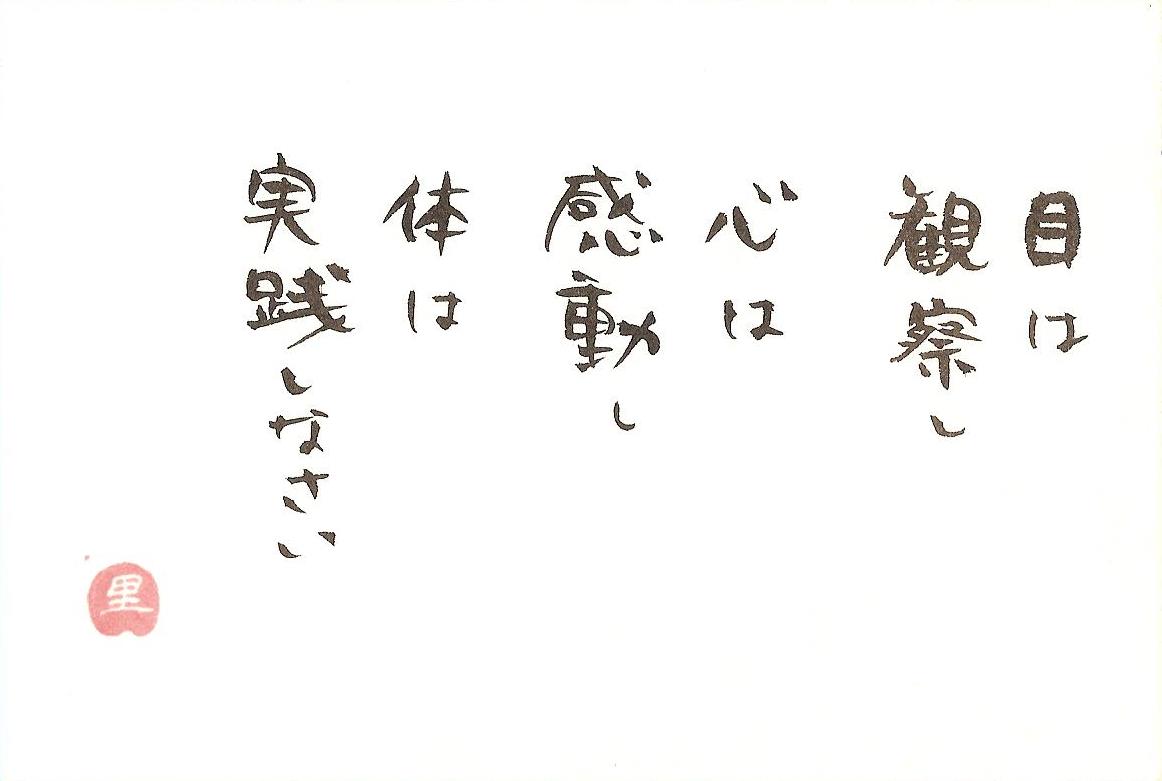 目は
観察し
心は
感動し
体は
実践しなさい
里